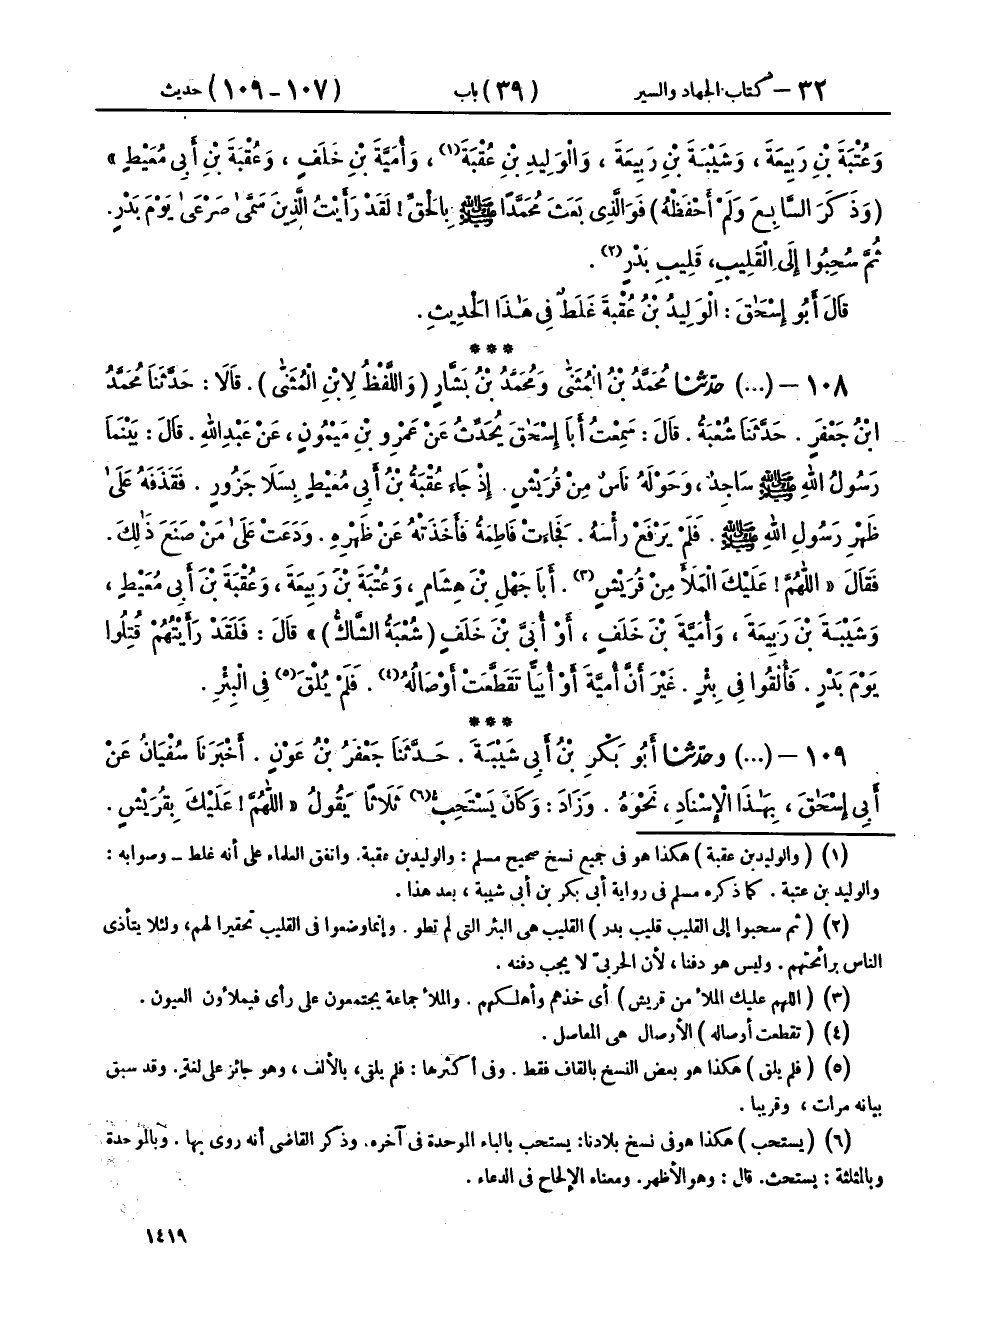 ٣٢ – كتاب الجهاد والسير (٣٩) باب (١٠٧ – ١٠٩) حديث
وَعُتْبَةَ بْنِ رَبِيعَةَ ، وَشَيْبَةَ بْنِ رَبِيعَةَ ، وَالْوَلِيدِ بْنِ عُقْبَةَ(١) ، وَأُمَيَّةَ بْنِ خَلَفٍ ، وَعُقْبَةَ بْنِ أَبِي مُعَيْطٍ »
(وَذَكَرَ السَّابِعَ وَلَمْ أَحْفَظْهُ) فَوَالَّذِي بَعَثَ مُحَمَّدًا ﷺ بِالْحَقِّ! لَقَدْ رَأَيْتُ الَّذِينَ سَمَّىٰ صَرْعَىٰ يَوْمَ بَدْرٍ.
ثُمَّ سُحِبُوا إِلَى الْقَلِيبِ، قَلِيبِ بَدْرٍ(٢) .
قَالَ أَبُو إِسْحَاقَ : الْوَلِيدُ بْنُ عُقْبَةَ غَلَطٌ فِي هَٰذَا الْحَدِيثِ .
***
١٠٨ – (...) حدّثنا مُحَمَّدُ بْنُ الْمُثَنَّىٰ وَمُحَمَّدُ بْنُ بَشَّارٍ (وَاللَّفْظُ لِابْنِ الْمُثَنَّىٰ) . قَالَا : حَدَّثَنَا مُحَمَّدُ
ابْنُ جَعْفَرٍ . حَدَّثَنَا شُعْبَةُ . قَالَ : سَمِعْتُ أَبَا إِسْحَاقَ يُحَدِّثُ عَنْ عَمْرِو بْنِ مَيْمُونٍ ، عَنْ عَبْدِ اللهِ . قَالَ : بَيْنَمَا
رَسُولُ اللهِ ﷺ سَاجِدٌ ، وَحَوْلَهُ نَاسٌ مِنْ قُرَيْشٍ . إِذْ جَاءَ عُقْبَةُ بْنُ أَبِي مُعَيْطٍ بِسَلَا جَزُورٍ . فَقَذَفَهُ عَلَىٰ
ظَهْرِ رَسُولِ اللهِ ﷺ . فَلَمْ يَرْفَعْ رَأْسَهُ . فَجَاءَتْ فَاطِمَةُ فَأَخَذَتْهُ عَنْ ظَهْرِهِ . وَدَعَتْ عَلَىٰ مَنْ صَنَعَ ذَٰلِكَ .
فَقَالَ « اللَّهُمَّ! عَلَيْكَ الْمَلَأَ مِنْ قُرَيْشٍ(٣) . أَبَا جَهْلِ بْنَ هِشَامٍ ، وَعُتْبَةَ بْنَ رَبِيعَةَ ، وَعُقْبَةَ بْنَ أَبِي مُعَيْطٍ ،
وَشَيْبَةَ بْنَ رَبِيعَةَ ، وَأُمَيَّةَ بْنَ خَلَفٍ ، أَوْ أُبَيَّ بْنَ خَلَفٍ (شُعْبَةُ الشَّاكُّ) » قَالَ : فَلَقَدْ رَأَيْتُهُمْ قُتِلُوا
يَوْمَ بَدْرٍ . فَأُلْقُوا فِي بِئْرٍ . غَيْرَ أَنَّ أُمَيَّةَ أَوْ أُبَيًّا تَقَطَّعَتْ أَوْصَالُهُ(٤) . فَلَمْ يُلْقَ(٥) فِي الْبِئْرِ .
***
١٠٩ – (...) وحدّثنا أَبُو بَكْرِ بْنُ أَبِي شَيْبَةَ . حَدَّثَنَا جَعْفَرُ بْنُ عَوْنٍ . أَخْبَرَنَا سُفْيَانُ عَنْ
أَبِي إِسْحَاقَ ، بِهَٰذَا الْإِسْنَادِ ، نَحْوَهُ . وَزَادَ : وَكَانَ يَسْتَحِبُّ(٦) ثَلَاثًا يَقُولُ « اللَّهُمَّ! عَلَيْكَ بِقُرَيْشٍ .
(١) (والوليد بن عقبة) هكذا هو فى جميع نسخ صحيح مسلم : والوليد بن عقبة. واتفق العلماء على أنه غلط – وصوابه :
والوليد بن عتبة . كما ذكره مسلم فى رواية أبى بكر بن أبى شيبة ، بعد هذا .
(٢) (ثم سحبوا إلى القليب قليب بدر) القليب هى البئر التى لم تطو . وإنما وضعوا فى القليب تحقيرا لهم، ولئلا يتأذى
الناس برائحتهم . وليس هو دفنا ، لأن الحربىّ لا يجب دفنه .
(٣) (اللهم عليك الملأ من قريش) أى خذهم وأهلكهم . والملأ جماعة يجتمعون على رأى فيملأون العيون .
(٤) (تقطعت أوصاله) الأوصال هى المفاصل .
(٥) (فلم يلق) هكذا هو بعض النسخ بالقاف فقط . وفى أكثرها : فلم يلقى، بالألف ، وهو جائز على لغةٍ. وقد سبق
بيانه مرات ، وقريبا .
(٦) (يستحب) هكذا هو فى نسخ بلادنا: يستحب بالباء الموحدة فى آخره. وذكر القاضى أنه روى بها . وبالموحدة
وبالمثلثة : يستحث. قال : وهو الأظهر. ومعناه الإلحاح فى الدعاء .
١٤١٩